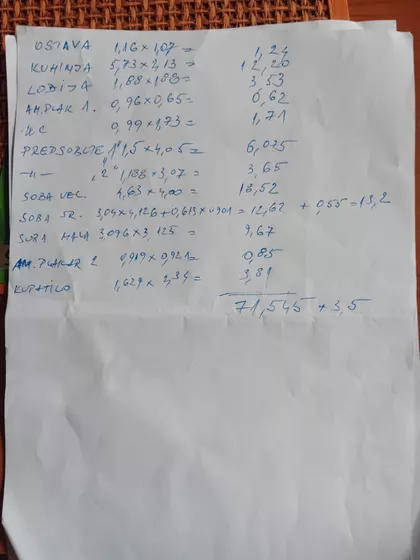 OSTAVA 1,16 x 1,07 = 1,24
KUHINJA 5,73 x 2,13 = 12,20
LOĐIJA 1,88 x 1,88 = 3,53
AM. PLAK 1. 0,96 x 0,65 = 0,62
WC 0,99 x 1,73 = 1,71
PREDSOBLJE "1" 1,5 x 4,05 = 6,075
-11- "2" 1,188 x 3,07 = 3,65
SOBA VEL. 4,63 x 4,00 = 18,52
SOBA SR. 3,04 x 4,126 + 0,613 x 0,901 = 12,62 + 0,55 = 13,2
SOBA MALA 3,096 x 3,125 = 9,67
AM. PLAKAR 2 0,919 x 0,921 = 0,85
KUPATILO 1,629 x 2,34 = 3,81
71,545 + 3,5